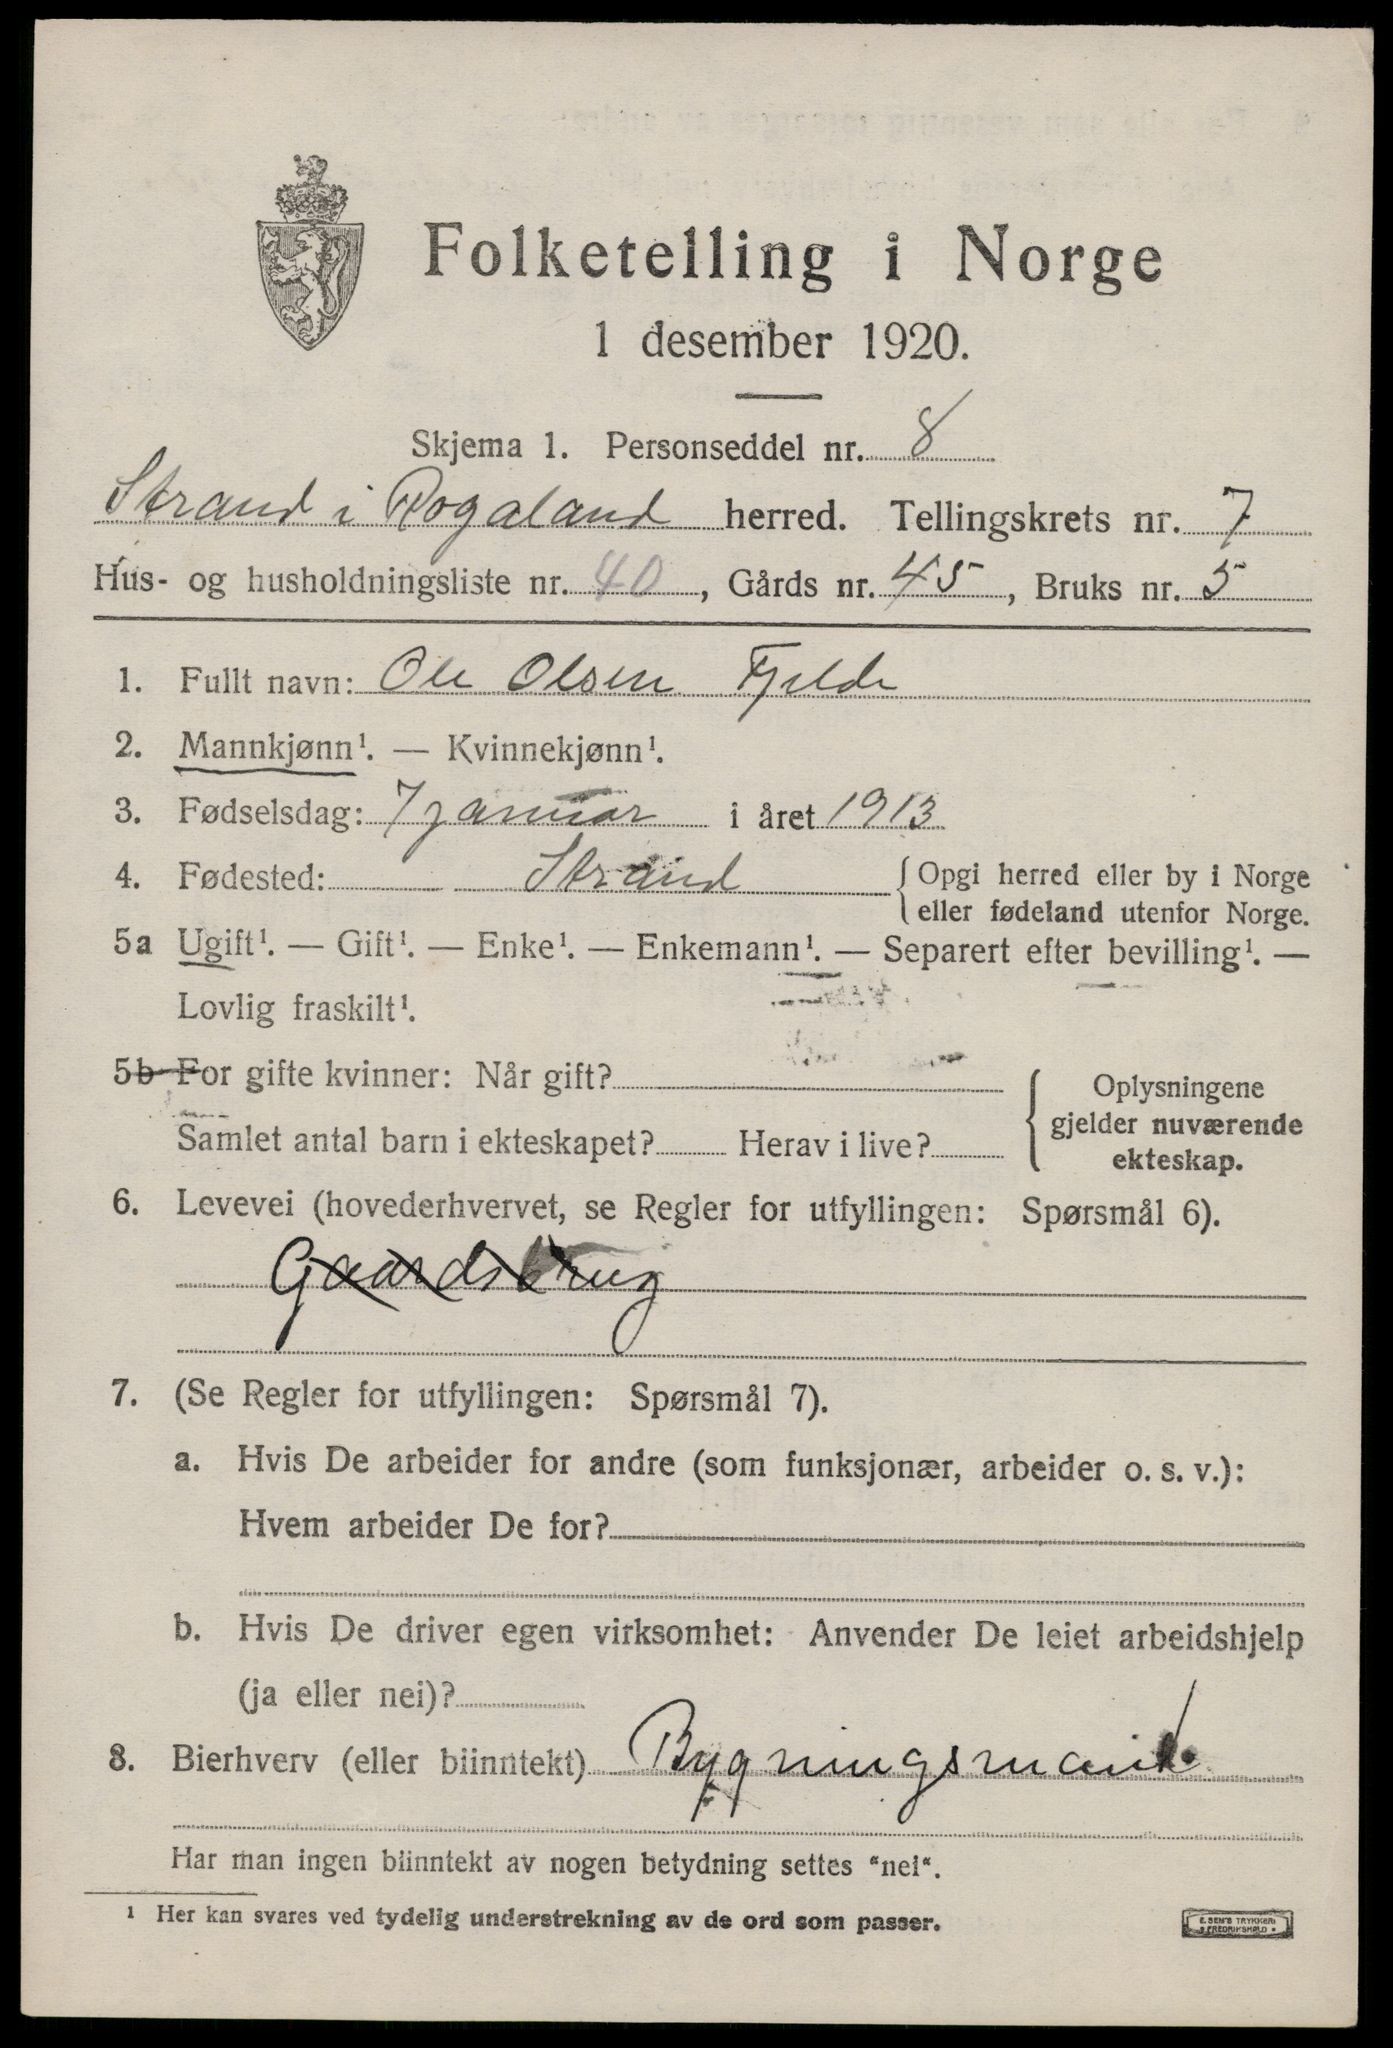 Folketelling i Norge
1 desember 1920.
Skjema 1. Personseddel nr. 8
Strand i Rogaland herred. Tellingskrets nr. 7
Hus- og husholdningsliste nr. 40, Gårds nr. 45, Bruks nr. 5
1. Fullt navn: Ole Olsen Fjelde
2. Mannkjønn¹. — Kvinnekjønn¹.
3. Fødselsdag: 7 januar i året 1913
4. Fødested: Strand { Opgi herred eller by i Norge
eller fødeland utenfor Norge.
5a Ugift¹. — Gift¹. — Enke¹. — Enkemann¹. — Separert efter bevilling¹. —
Lovlig fraskilt¹.
5b For gifte kvinner: Når gift?
Samlet antal barn i ekteskapet? Herav i live?
Oplysningene
gjelder nuværende
ekteskap.
6. Levevei (hovederhvervet, se Regler for utfyllingen: Spørsmål 6).
Gaardsbrug
7. (Se Regler for utfyllingen: Spørsmål 7).
a. Hvis De arbeider for andre (som funksjonær, arbeider o. s. v.):
Hvem arbeider De for?
b. Hvis De driver egen virksomhet: Anvender De leiet arbeidshjelp
(ja eller nei)?
8. Bierhverv (eller biinntekt) Bygningsmand
Har man ingen biinntekt av nogen betydning settes "nei".
¹ Her kan svares ved tydelig understrekning av de ord som passer.
E. SEM'S TRYKKERI
FREDRIKSHALD